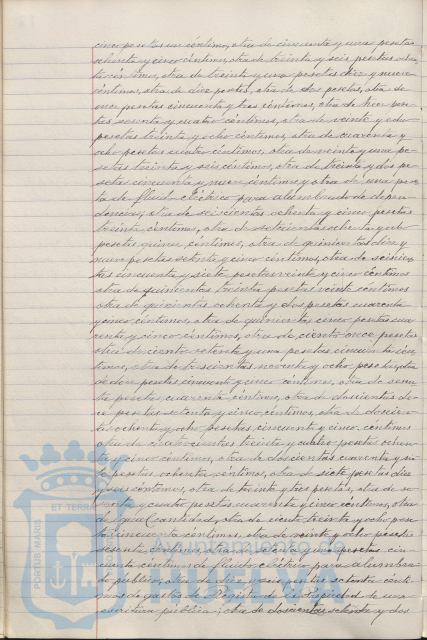 cinco pesetas un céntimo, otra de cincuenta y una pesetas
ochenta y cinco céntimos, otra de treinta y seis pesetas
céntimos, otra de treinta y una pesetas diez y nueve
céntimos, otra de diez pesetas, otra de dos pesetas, otra de
once pesetas cincuenta y tres céntimos, otra de trece pese-
tas noventa y cuatro céntimos, otra de veinte y ocho
pesetas treinta y ocho céntimos, otra de cuarenta y
ocho pesetas céntimos, otra de veinte y una pe-
setas treinta y seis céntimos, otra de treinta y dos pe-
setas cincuenta y nueve céntimos y otra de una pese-
ta de fluido eléctrico para alumbrado de depen-
dencias, otra de seiscientas ochenta y cinco pesetas
treinta céntimos, otra de setecientas ochenta y ocho
pesetas quince céntimos, otra de quinientas diez y
nueve pesetas setenta y cinco céntimos, otra de seiscien-
tas cincuenta y siete pesetas veinte y cinco céntimos
otra de quinientas treinta pesetas veinte céntimos
otra de quinientas ochenta y dos pesetas cuarenta
y cinco céntimos, otra de quinientas cinco pesetas cua-
renta y cinco céntimos, otra de ciento once pesetas
otra de ciento setenta y una pesetas cincuenta cén-
timos, otra de trescientas noventa y ocho pesetas, otra
de doce pesetas cincuenta y cinco céntimos, otra de
pesetas cuarenta céntimos, otra de doscientas do-
ce pesetas setenta y cinco céntimos, otra de doscien-
tas ochenta y ocho pesetas cincuenta y cinco céntimos
otra de cuatrocientas treinta y cuatro pesetas ochen-
ta y cinco céntimos, otra de doscientas cuarenta y
pesetas ochenta céntimos, otra de siete pesetas diez
y seis céntimos, otra de treinta y tres pesetas, otra de
y cuatro pesetas cuarenta y cinco céntimos, otra
de igual cantidad, otra de ciento treinta y ocho pese-
tas cincuenta céntimos, otra de veinte y ocho pesetas
sesenta céntimos, otra de y una pesetas cin-
cuenta céntimos de fluido eléctrico para alumbra-
do público; otra de diez y seis pesetas setenta cénti-
mos de gastos de Registro de la Propiedad de una
escritura pública; otra de doscientas setenta y dos
PORTUS MARIS
ET TERRA
Ayuntamiento de